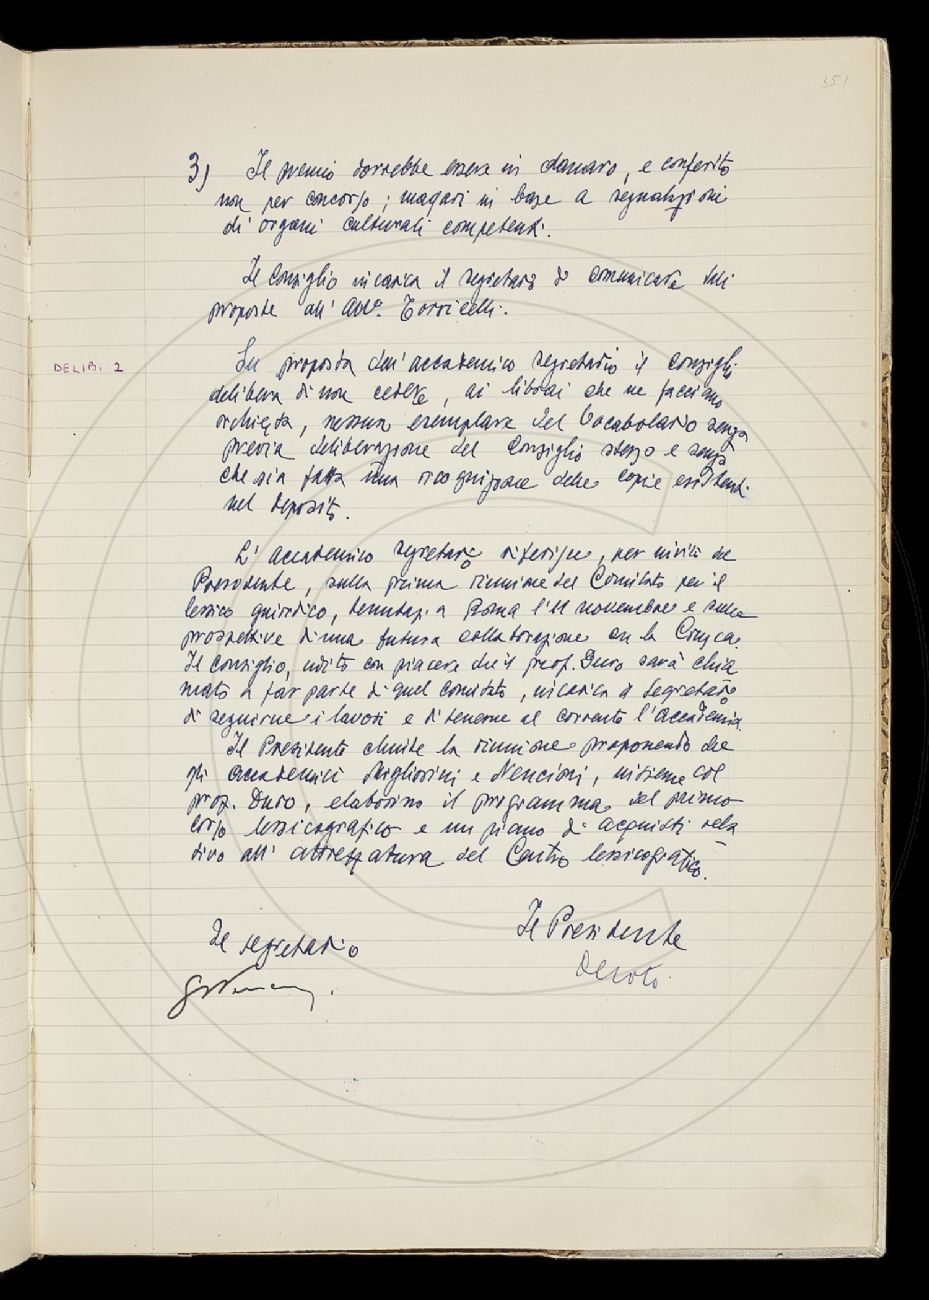 351
3) Il premio dovrebbe essere in danaro, e conferito
non per concorso; magari in base a segnalazioni
di organi culturali competenti.
Il Consiglio incarica il segretario di comunicare tali
proposte all' Avv. Torricelli.
DELIB. 2
Su proposta dell'accademico segretario il Consiglio
delibera di non cedere, ai librai che ne facciano
richiesta, nessun esemplare del Vocabolario senza
previa deliberazione del Consiglio stesso e senza
che sia fatta una ricognizione delle copie esistenti
nel deposito.
L' accademico segretario riferisce, per invito del
Presidente, sulla prima riunione del Comitato per il
lessico giuridico, tenutasi a Roma l'11 novembre e sulle
prospettive di una futura collaborazione con la Crusca.
Il consiglio, udito con piacere che il prof. Duro sarà chia
mato a far parte di quel comitato, incarica il Segretario
di seguirne i lavori e di tenerne al corrente l'Accademia.
Il Presidente chiude la riunione proponendo che
gli accademici Migliorini e Nencioni, insieme col
prof. Duro, elaborino il programma del primo
corso lessicografico e un piano di acquisti rela
tivo all' attrezzatura del Centro lessicografico.
Il segretario
Il Presidente
Devoto